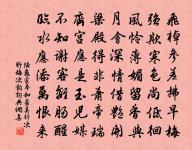 飛棹參差拂早梅
強欺寒色尚低徊
風憐薄媚留香與
月會深情借艷開
梁殿得非蕭帝瑞
齊宮應是玉兒媒
不知謝客離腸醒
臨水應添萬恨來
陸龜蒙奉和襲美行次
野梅次韻詞典網集